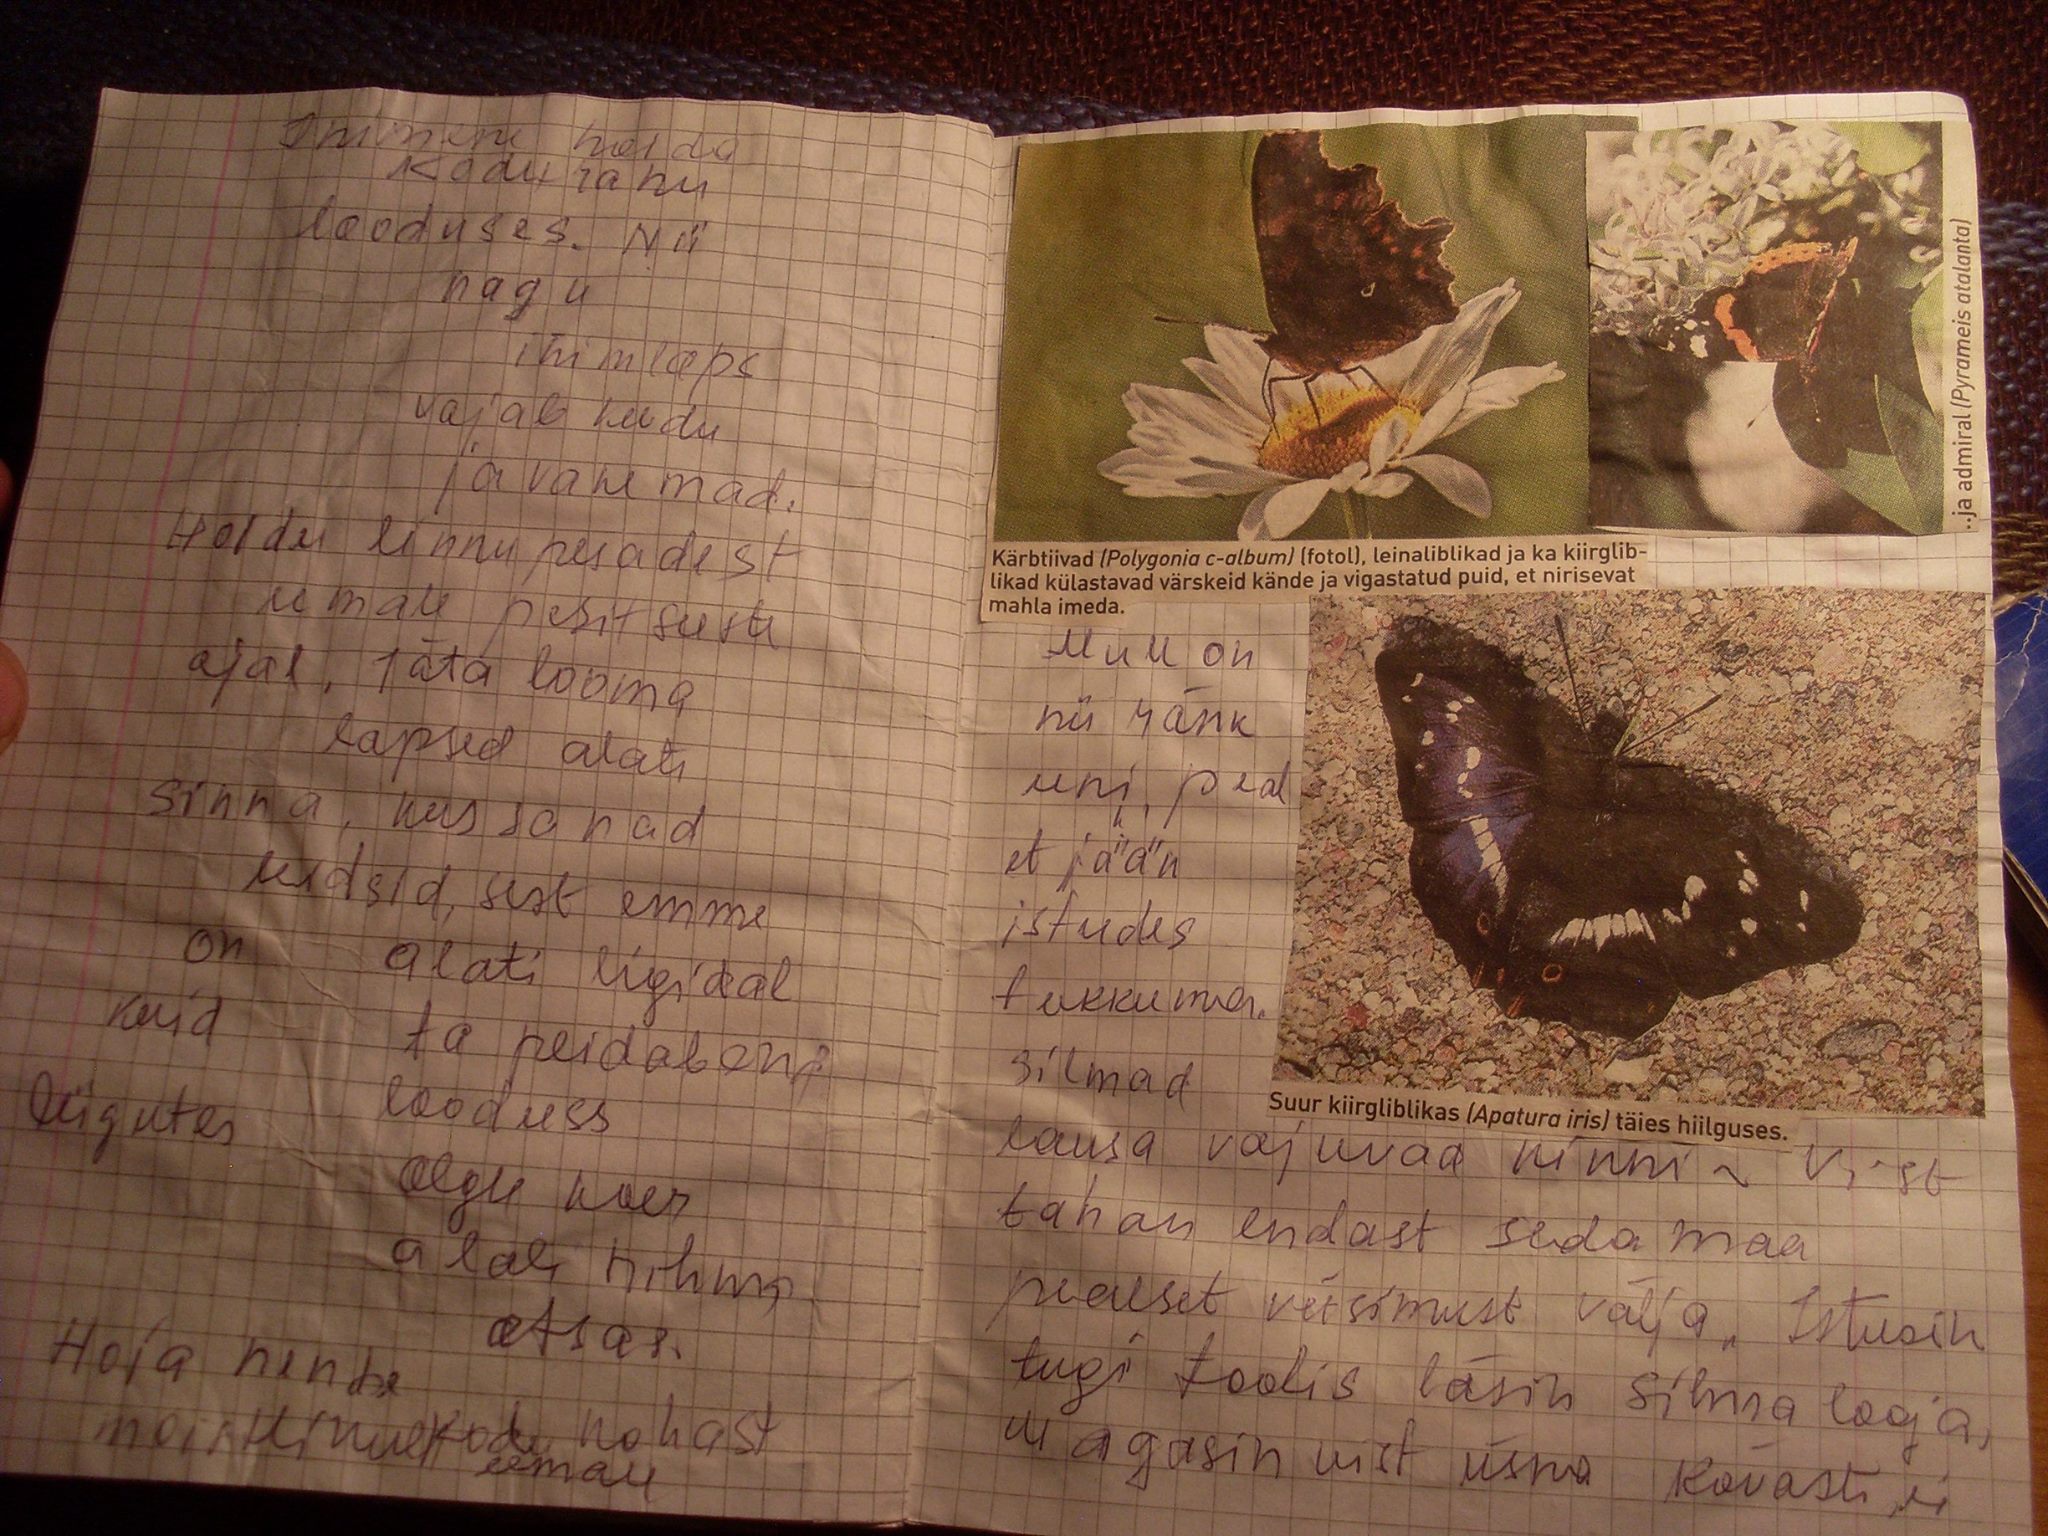 Inimene hoida
Kodu rahu
looduses. Nii
nagu
inimlaps
vajab kodu
ja vanemad.
Hoidu linnu pesadest
eemale pesitsuse
ajal, Jäta looma
lapsed alati
sinna, kus sa nad
leidsid, sest emme
on alati ligidal
kuid ta peidab end
liigutes looduses
olgu koer
alati rihma
otsas.
Hoia nende
kodu kohast
eemale
Kärbtiivad (Polygonia c-album) (fotol), leinaliblikad ja ka kiirglib-
likad külastavad värskeid kände ja vigastatud puid, et nirisevat
mahla imeda.
..ja admiral (Pyrameis atalanta)
Mul on
nii ränk
uni, peal
et jään
istudes
tukkuma.
Silmad
Suur kiirgliblikas (Apatura iris) täies hiilguses.
lausa vajuvad kinni ~ Vist
tahan endast seda maa
pealset väsimust välja. Istusin
tugi toolis lasin silma looja,
magasin vist üsna kõvasti, ei